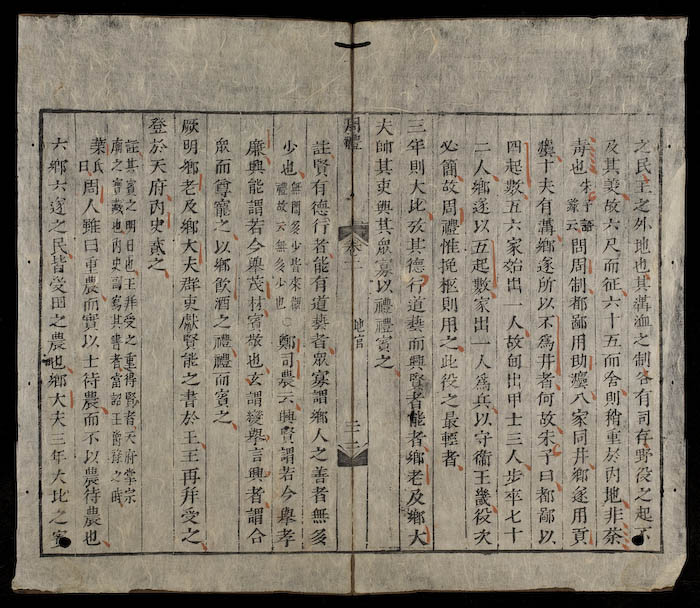 之民王之外地也其溝洫之制各有司存野役之起不
及其羨故六尺而征六十五而舍則稍重於內地非蔡
朱子語
類云
問周制都鄙用助灋八家同井鄉遂用貢
灋十夫有溝鄉遂所以不為井者何故朱子曰都鄙以
四起數五六家始出一人故甸出甲士三人步卒七十
二人鄉遂以五起數家出一人為兵以守衞王畿役次
必簡故周禮惟挽柩則用之此役之最輕者
三年則大比攷其德行道藝而興賢者能者鄉老及鄉大
夫帥其吏與其眾寡以禮禮賓之
周禮
卷二
地官
三二
註賢有德行者能有道藝者眾寡謂鄉人之善者無多
少也
無問多少皆來觀
禮故云無多少也
鄭司農云興賢謂若今舉孝
廉興能謂若今舉茂材賓敬也玄謂變舉言興者謂合
眾而尊寵之以鄉飲酒之禮禮而賓之
厥明鄉老及鄉大夫群吏獻賢能之書於王王再拜受之
登於天府內史貳之
註其賓之明日也王拜受之重得賢者天府掌宗
廟之寶藏也內史副寫其書者當詔王爵祿之時
葉氏
曰
周人雖曰重農而實以士待農而不以農待農也
六鄉六遂之民皆受田之農也鄉大夫三年大比之賓